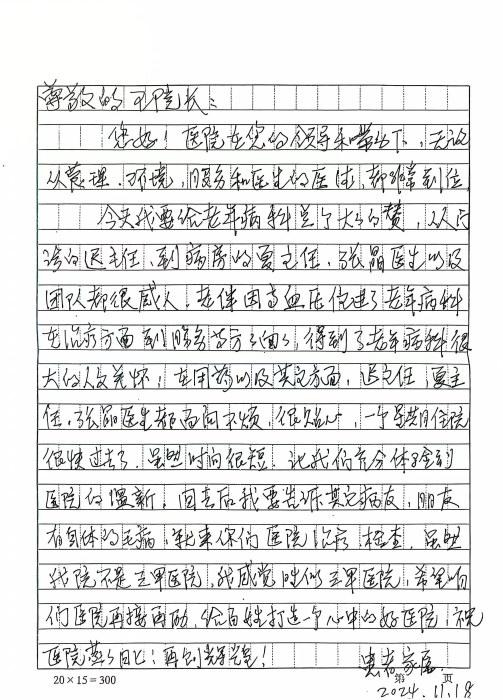 尊敬的  院长：
您好！医院在您的领导和带领下，无论
从管理、环境，服务和医生的医德，都非常到位，
今天我要给老年病科点个大大的赞，从门
诊的迟主任、到病房的夏主任、张晶医生以及
团队都很感人，老伴因高血压住进了老年病科
在治疗方面到服务方方面面，得到了老年病科很
大的人文关怀，在用药以及其它方面，迟主任，夏主
任，张晶医生都不厌其烦，很贴心，一个星期住院
很快过去了，虽然时间很短，让我们充分体会到
医院的温新，回去后我要告诉其它病友，朋友
有身体的毛病，就来你们医院治疗、检查，虽然
我院不是三甲医院，我感觉胜似三甲医院，希望咱
们医院再接再励，给百姓打造一个心中的好医院，祝
医院蒸蒸日上！再创辉煌！
患者家属
20×15=300 第 页
2024.11.18